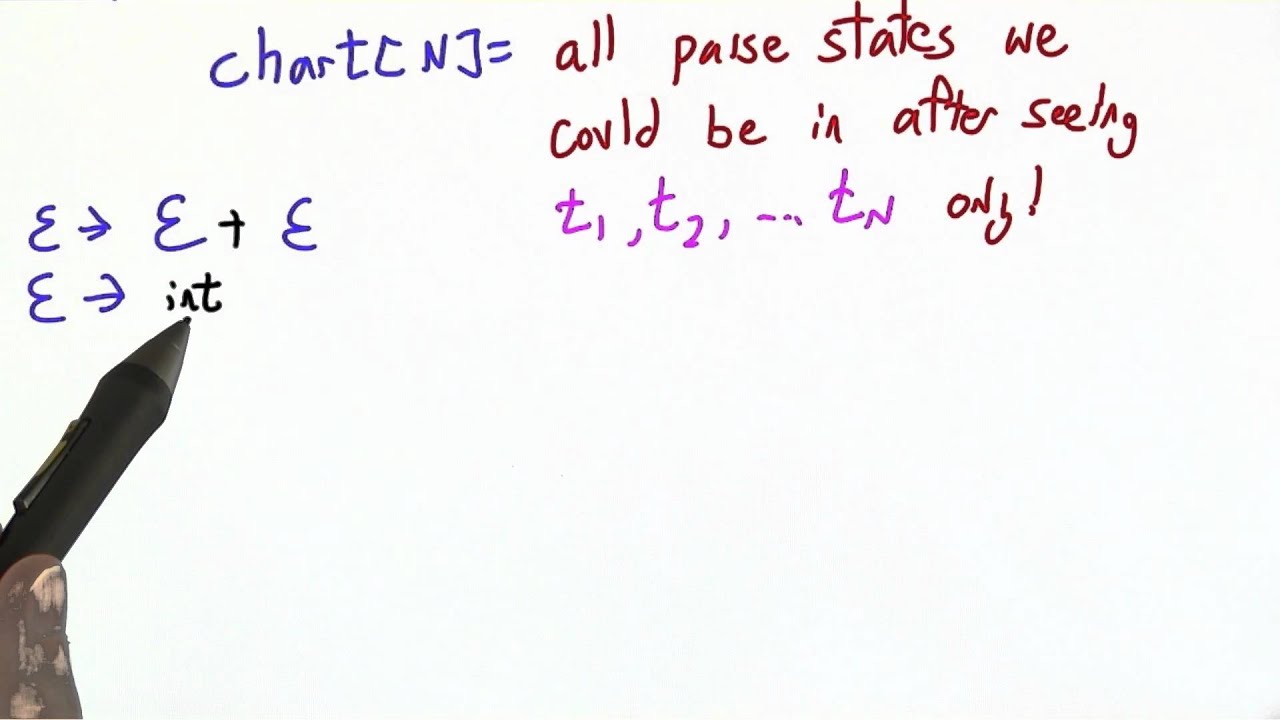 chart[N]= all parse states we
could be in after seeing
t1, t2, ... tN only!
ε → ε + ε
ε → int